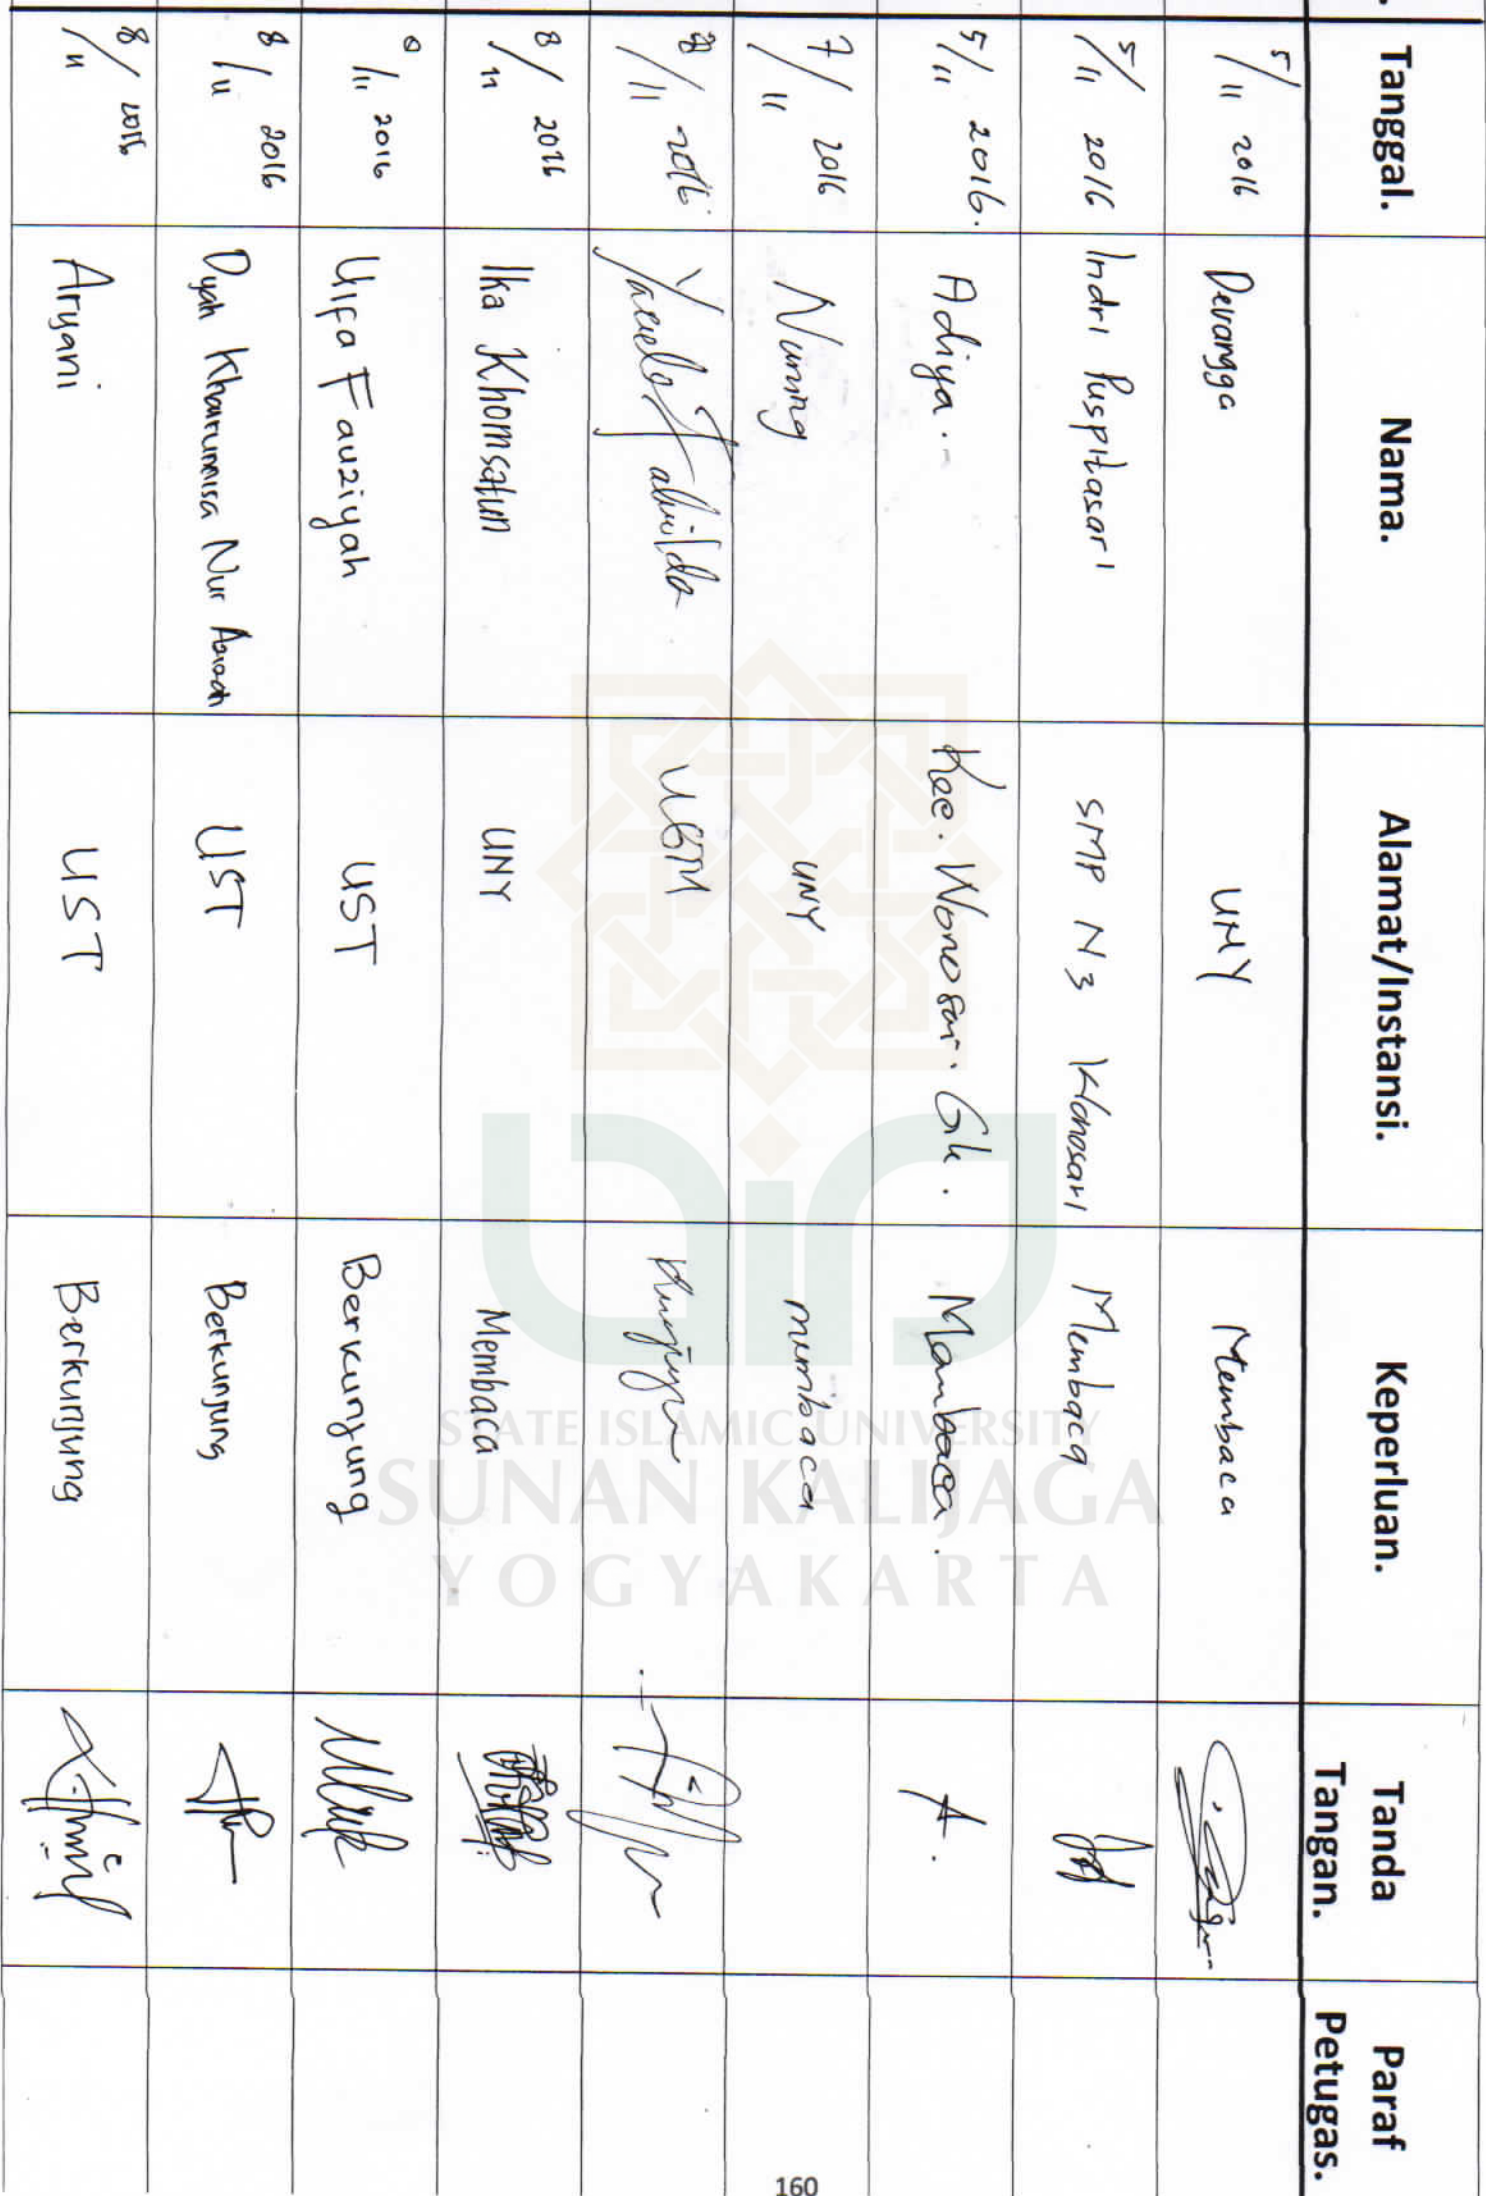 Tanggal. Nama. Alamat/Instansi. Keperluan. Tanda Tangan. Paraf Petugas.
5/11 2016 Devangga UNY Membaca
5/11 2016 Indri Puspitasari SMP N 3 Wonosari Membaca
5/11 2016. Adiya. Kec. Wonosari. Gk. Membaca.
7/11 2016 Nuning UNY membaca
/11 2016. UGM
8/11 2016 Ika Khomsatun UNY Membaca
/11 2016 Ulfa Fauziyah UST Berkunjung
8/11 2016 Dyah Khairunnisa Nur UST Berkunjung
8/11 2016 Aryani UST Berkunjung
STATE ISLAMIC UNIVERSITY
SUNAN KALIJAGA
YOGYAKARTA
160